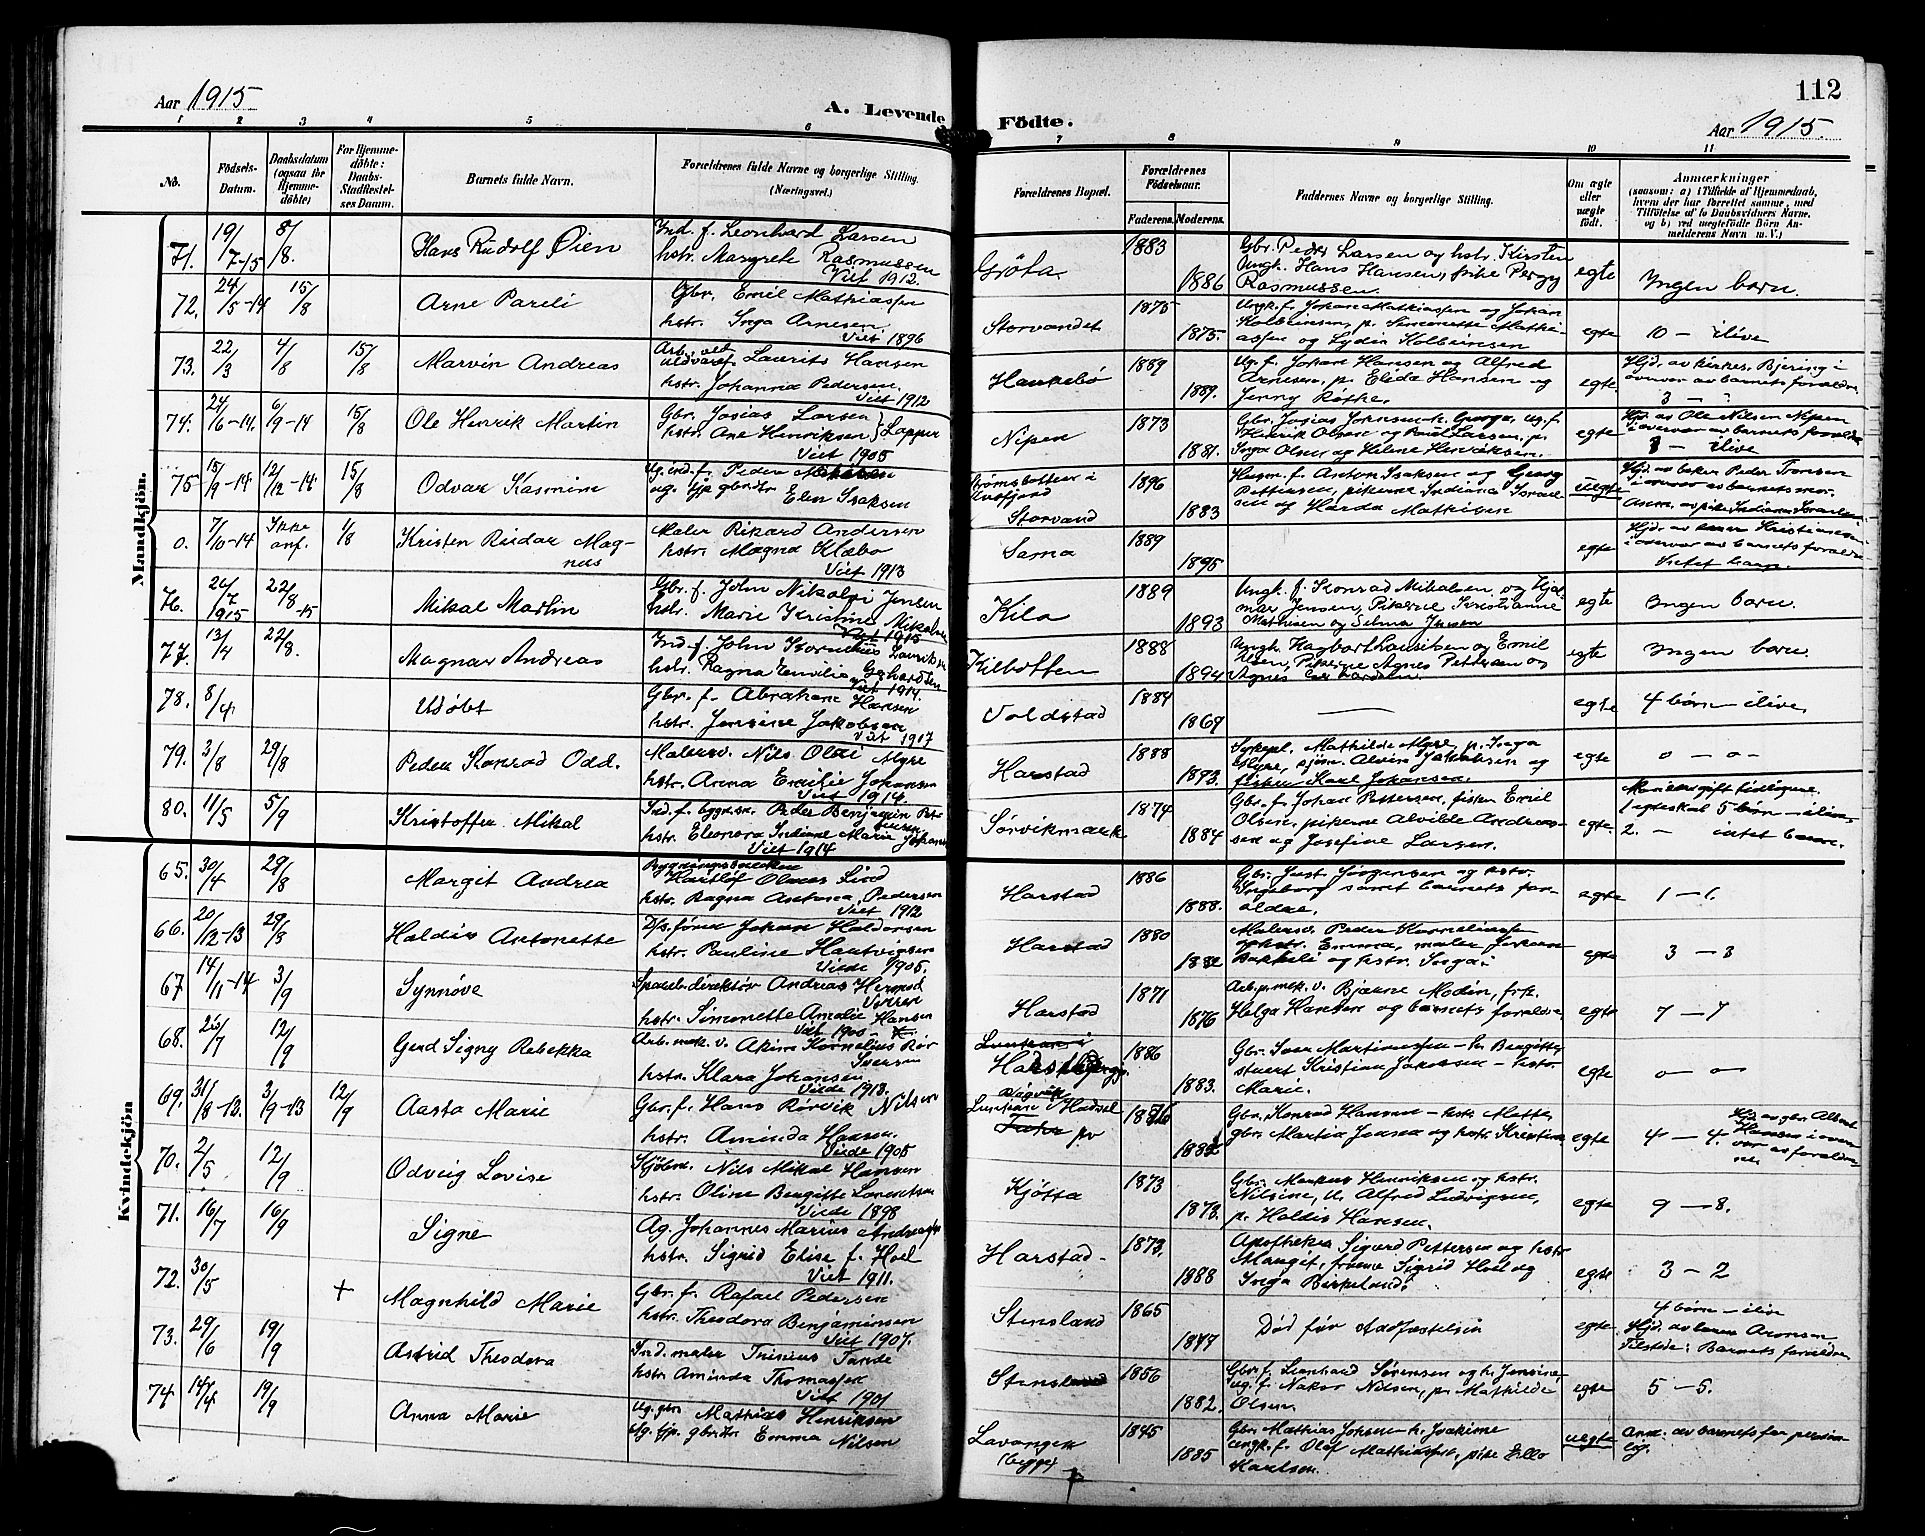 112
Aar 1915.
A. Levende Födte.
Aar 1915.
1 2 3 4 5 6 7 8 9 10 11
No.
Födsels-
Datum.
Daabsdatum
(ogsaa for
Hjemme-
döbte)
For Hjemme-
döbte:
Daabs-
Stadfæstel-
ses Datum.
Barnets fulde Navn.
Forældrenes fulde Navne og borgerlige Stilling.
(Næringsvei.)
Forældrenes Bopæl.
Forældrenes
Födselsaar.
Faderens. Moderens.
Faddernes Navne og borgerlige Stilling.
Om ægte
eller
uægte
födt.
Anmærkninger
(saasom: a) i Tilfælde af Hjemmedaab,
hvem der har forrettet samme, med
Tilföielse af to Daabsvidners Navne,
og b) ved uægtefödte Börn An-
melderens Navn m. V.)
Mandkjön.
71. 19/7-15 8/8. Hans Rudolf Øien
Ind. f. Leonhard Larsen
hstr. Margrete Rasmussen
Viet 1912.
Grøta 1883 1886
Gbr. Peder Larsen og hstr. Kirsten
Ungk. Hans Hansen, frike Peggy
Rasmussen.
egte Ingen børn.
72. 24/5-14 15/8 Arne Pareli
Gbr. Emil Mathiassen
hstr. Inga Arnesen.
Viet 1896
Storvandet 1875 1875.
Ungk. f. Johan Mathiassen og Johan
Kolbeinsen, p. Simonette Mathi-
assen og Lydia Kolbeinsen
egte 10 - ilive
73. 22/3 4/8 15/8 Marvin Andreas
Laurits Hansen
hstr. Johanna Pedersen.
Viet 1912
Haukebø 1889 1889.
Ug. f. Johan Hansen og Alfred
Arnesen, p. Elida Hansen og
Jenny Røthe.
egte Hjd. av kirkes. Bjering i
overvær av barnets forældre
3 - "
74. 24/6-14. 6/9-14 15/8 Ole Henrik Martin
Gbr. Josias Larsen
hstr. Ane Henriksen } Lapper
Viet 1905
Nipen 1873 1881.
Gbr. Josias Johnsen
Henrik Olsen og Paul Larsen, p.
Inga Olsen og Helene Henriksen.
egte Hjd. av Ole Nilsen Nipen
i overvær av barnets forældre
8 - ilive
75 15/9-14 12/12-14 15/8 Odvar Kasmine
Ug. ind. f. Peder
ug. tjp. gbrdtr Elen Isaksen
Storvand 1896 1883
Husm. f. Anton Isaksen og Georg
Pettersen, pikerne Indiana Israel-
sen og Harda Mathisen
uegte Hjd. av baker Peder Tronsen
i overvær av barnets mor.
0. 7/10-14 Ikke anf. 1/8 Kristen Reidar Mag-
nus
Maler Rikard Andersen
hstr. Magna Klæbo
Viet 1913
Sama 1889 1895
egte Hjd. av Kristiansen
i overvær av barnets forældre
Intet barn.
76. 20/7 1915 22/8-15 Mikal Martin
Gbr. f. John Nikolai Jensen
hstr. Marie Kristine Mikalsen
Viet 1915
Kila 1889 1893
Ungk. f. Konrad Mikalsen og Hjal-
mar Jensen, Pikerne Kristianne
Mathisen og Selma Jensen
egte Ingen børn.
77. 13/4 22/8. Magnar Andreas
Ind. f. John Kornelius Lauritsen
hstr. Ragna Emilie Gerhardsen
Viet 1914.
Kilbotten 1888 1894
egte Ingen børn.
78. 8/4 Udøbt
Gbr. f. Abraham Hansen
hstr. Jensine Jakobsen
Viet 1907
Voldstad 1884 1869
egte 4 børn ilive
79. 3/8 29/8 Peder Konrad Odd.
Malersv. Nils Olai Myre
hstr. Anna Emilie Johansen
Viet 1914.
Harstad 1888 1893.
Sykepl. Mathilde Myre, p. Inga
Myre, sjøm. Alvin Jakobsen og
fisker Karl Johansen.
egte 0 - 0 -
80. 11/5 5/9 Kristoffer Mikal
Ind. f. bygn.sn. Peder Benjamin
hstr. Eleonora Indianne Marie
Viet 1914
Sørvikmark 1874 1884
Gbr. f. Johan Pettersen, fisker Emil
Olsen, pikerne Alvilde Andreas-
sen og Josefine Larsen.
egte. 1 egteskal 5 børn - ilive
2. - intet barn.
Kvindekjön
65. 30/4 29/8 Margit Andrea
Bygningssnekker
Hartlof Olaus Lind
hstr. Ragna Antona Pedersen
Viet 1912
Harstad 1886 1888.
Gbr. Just Jørgensen og hstr.
Ingeborg samt barnets for-
ældre.
egte 1 - 1.
66. 20/12-13 29/8 Haldis Antonette
Johan Haldorsen
hstr. Pauline Hartvigsen
Viede 1905.
Harstad 1880
Malersv. Peder Korneliussen
og hstr. Emma, maler Johan
Bakkeli og hstr. Inga.
egte 3 - 3
67 14/11-14 3/9 Synnøve
Spareb.direktør Andreas Hermod
hstr. Simonette Amalie Hansen
Viet 1900
Harstad 1871 1876
Arb. p. mek. v. Bjarne Modin, frk.
Helga Hansen og barnets forældre
egte 7 - 7
68. 26/7 12/9 Gerd Signy Rebekka
Arb. mek. v. Akim Kornelius Rør
Iversen
hstr. Klara Johansen
Viede 1913.
1886 1883.
Gbr. Martinussen - hr. Bergitte
stuert Kristian Jakobsen - hstr.
Marie.
egte 0 - 0 -
69. 31/8-13. 3/9-13 12/9 Aasta Marie
Gbr. f. Hans Rørvik Nilsen
hstr. Aminda Hansen.
Viede 1905
Gbr. Konrad Hansen - hstr. Mette,
gbr. Martin Jensen og hstr. Kristine
egte 4 - 4. Hjd. av gbr. Albert
Hansen i over-
vær
av forældre-
ne
70. 2/5 12/9 Odveig Lovise
Nils Mikal Hansen
hstr. Oline Bergitte Lorentsen
Viede 1898
Kjøtta 1873 1873.
Gbr. Markus Henriksen og hstr.
Nilsine, u. Alfred Ludvigsen,
p. Haldis Hansen.
egte 9 - 8.
71. 16/7 16/9 Signe
Ag. Johannes Marius Andreassen
hstr. Sigrid Elise f. Hoel
Viet 1911.
Harstad 1873. 1888
Apotheker Sigurd Pettersen og hstr
Margit, frøkne Sigrid Hoel og
Inga Birkelund.
egte 3 - 2
72. 30/5 + Magnhild Marie
Gbr. f. Rafael Pedersen
hstr. Theodora Benjaminsen
Viet 1907.
Stensland 1865 1877
Død før stadfæstelsen
egte 4 børn - ilive
Hjd. av lærer Aronsen
Tilstede: Barnets forældre
73. 29/6 19/9 Astrid Theodora
Ind. maler Trinius Tande
hstr. Aminda Thomassen
Viet 1901
Stensland 1856 1882.
Gbr. f. Lienhard Sørensen og h. Jensine
ug. f. Nakor Nilsen, p. Mathilde
Olsen.
egte 5 - 5.
74 14/4 19/9 Anna Marie
Ug. gbr. Mathias Henriksen
Ug. tjp. gbrdtr. Emma Nilsen
Lavangen
(begge)
1845 1885
Gbr. Mathias Johsen - h. Joakime
ungk. f. Olof Mathiassen, pike Ella
Karlsen.
uegte Anm. av barnets far person-
lig.